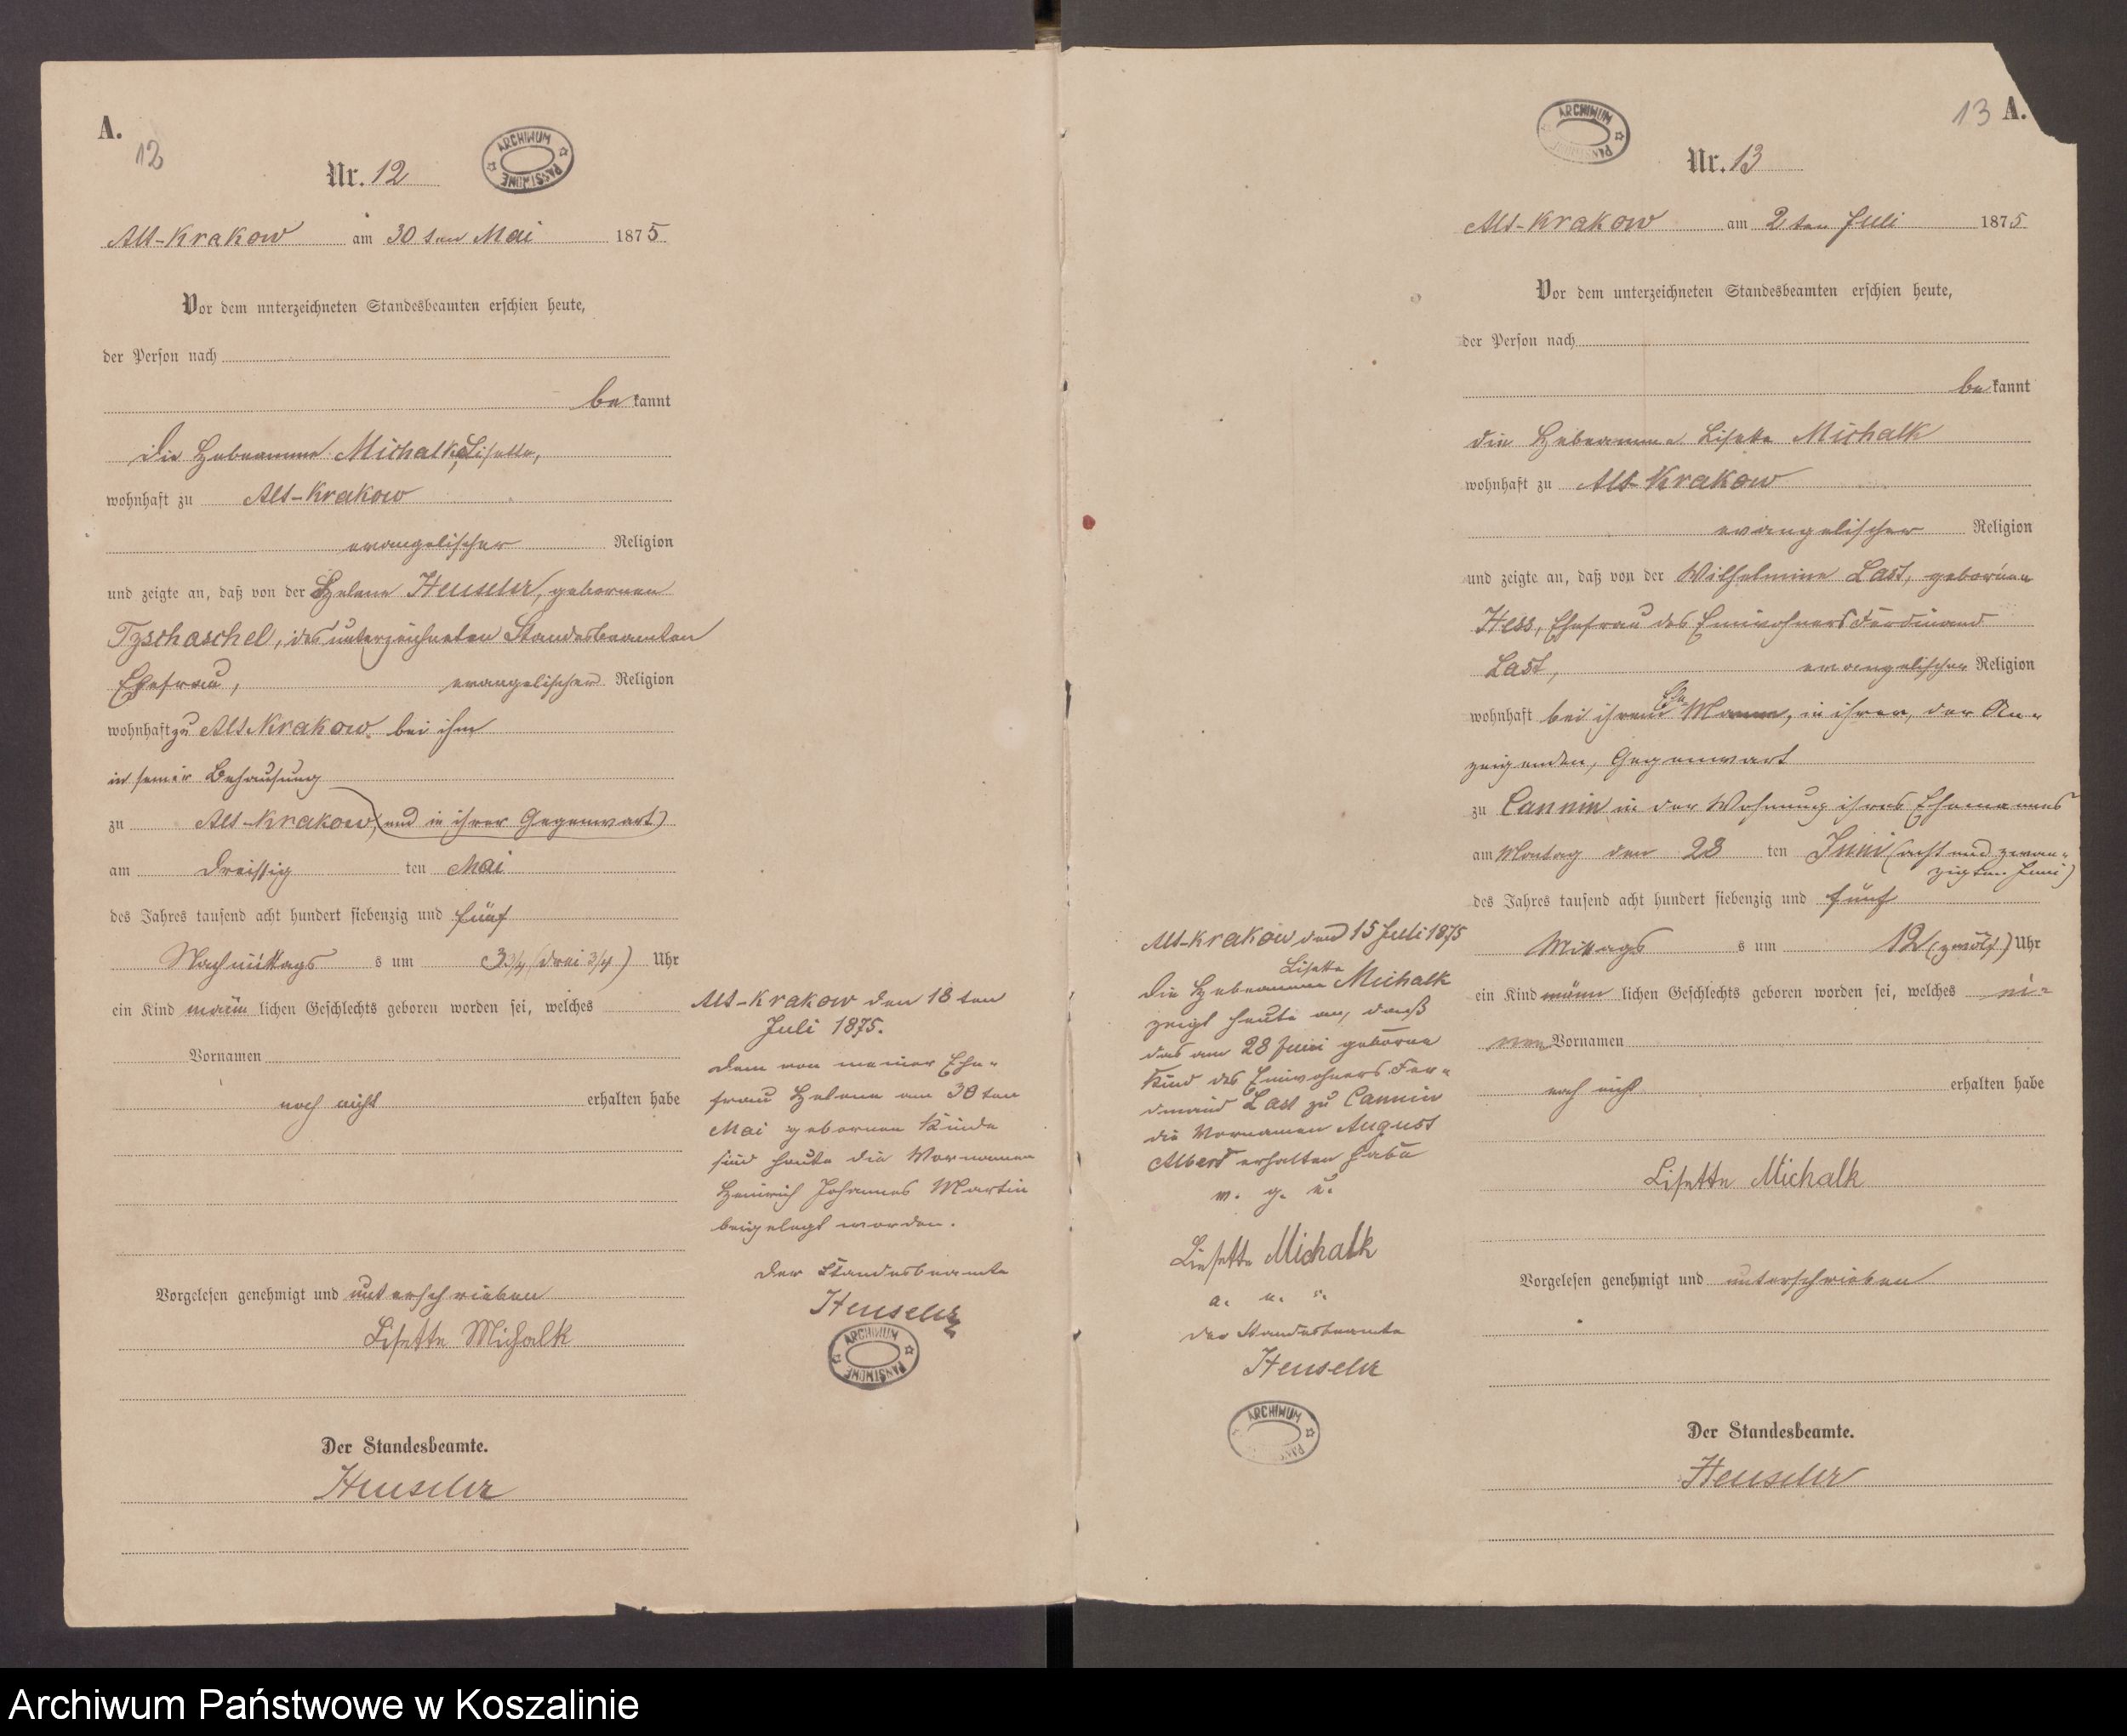 A.
12
Nr. 12
ARCHIWUM PAŃSTWOWE
Alt-Krakow am 30 ten Mai 1875.
Vor dem unterzeichneten Standesbeamten erschien heute,
der Person nach
be kannt
die Hebeamme Michalk, Lisette,
wohnhaft zu Alt-Krakow
evangelischer Religion
und zeigte an, daß von der Helene Heuseler, gebornen
Tzschaschel, des unterzeichneten Standesbeamten
Ehefrau, evangelischer Religion
wohnhaft zu Alt Krakow bei ihm
in seiner Behausung
zu Alt-Krakow, (und in ihrer Gegenwart)
am dreissig ten Mai
des Jahres tausend acht hundert siebenzig und fünf
Nachmittags s um 3 3/4 (drei 3/4) Uhr
ein Kind männ lichen Geschlechts geboren worden sei, welches
Vornamen
noch nicht erhalten habe
Vorgelesen genehmigt und unterschrieben
Lisette Michalk
Der Standesbeamte.
Heuseler
Alt-Krakow den 18 ten
Juli 1875.
dem von meiner Ehe-
frau Helene am 30 ten
Mai gebornen Kinde
sind heute die Vornamen
Heinrich Johannes Martin
beigelegt worden.
Der Standesbeamte
Heuseler
ARCHIWUM PAŃSTWOWE
13 A.
ARCHIWUM PAŃSTWOWE
Nr. 13
Alt-Krakow am 2 ten Juli 1875
Vor dem unterzeichneten Standesbeamten erschien heute,
der Person nach
be kannt
die Hebeamme Lisette Michalk
wohnhaft zu Alt-Krakow
evangelischer Religion
und zeigte an, daß von der Wilhelmine Last, gebornen
Hess, Ehefrau des Einwohners Ferdinand
Last, evangelischer Religion
wohnhaft bei ihrem Ehe-Manne, in ihrer, der An-
zeigenden, Gegenwart
zu Cannin in der Wohnung ihres Ehemannes
am Montag den 28 ten Juni (acht und zwan-
zigsten Juni)
des Jahres tausend acht hundert siebenzig und fünf
Mittags s um 12 (zwölf) Uhr
ein Kind männ lichen Geschlechts geboren worden sei, welches ei-
nen Vornamen
noch nicht erhalten habe
Lisette Michalk
Vorgelesen genehmigt und unterschrieben
Der Standesbeamte.
Heuseler
Alt-Krakow, den 15 Juli 1875
Die Hebeamme Lisette Michalk
zeigt heute an, daß
das am 28 Juni geborne
Kind des Einwohners Fer-
dinand Last zu Cannin
die Vornamen August
Albert erhalten habe
v. g. u.
Lisette Michalk
a. u. s.
Der Standesbeamte
Heuseler
ARCHIWUM PAŃSTWOWE
Archiwum Państwowe w Koszalinie